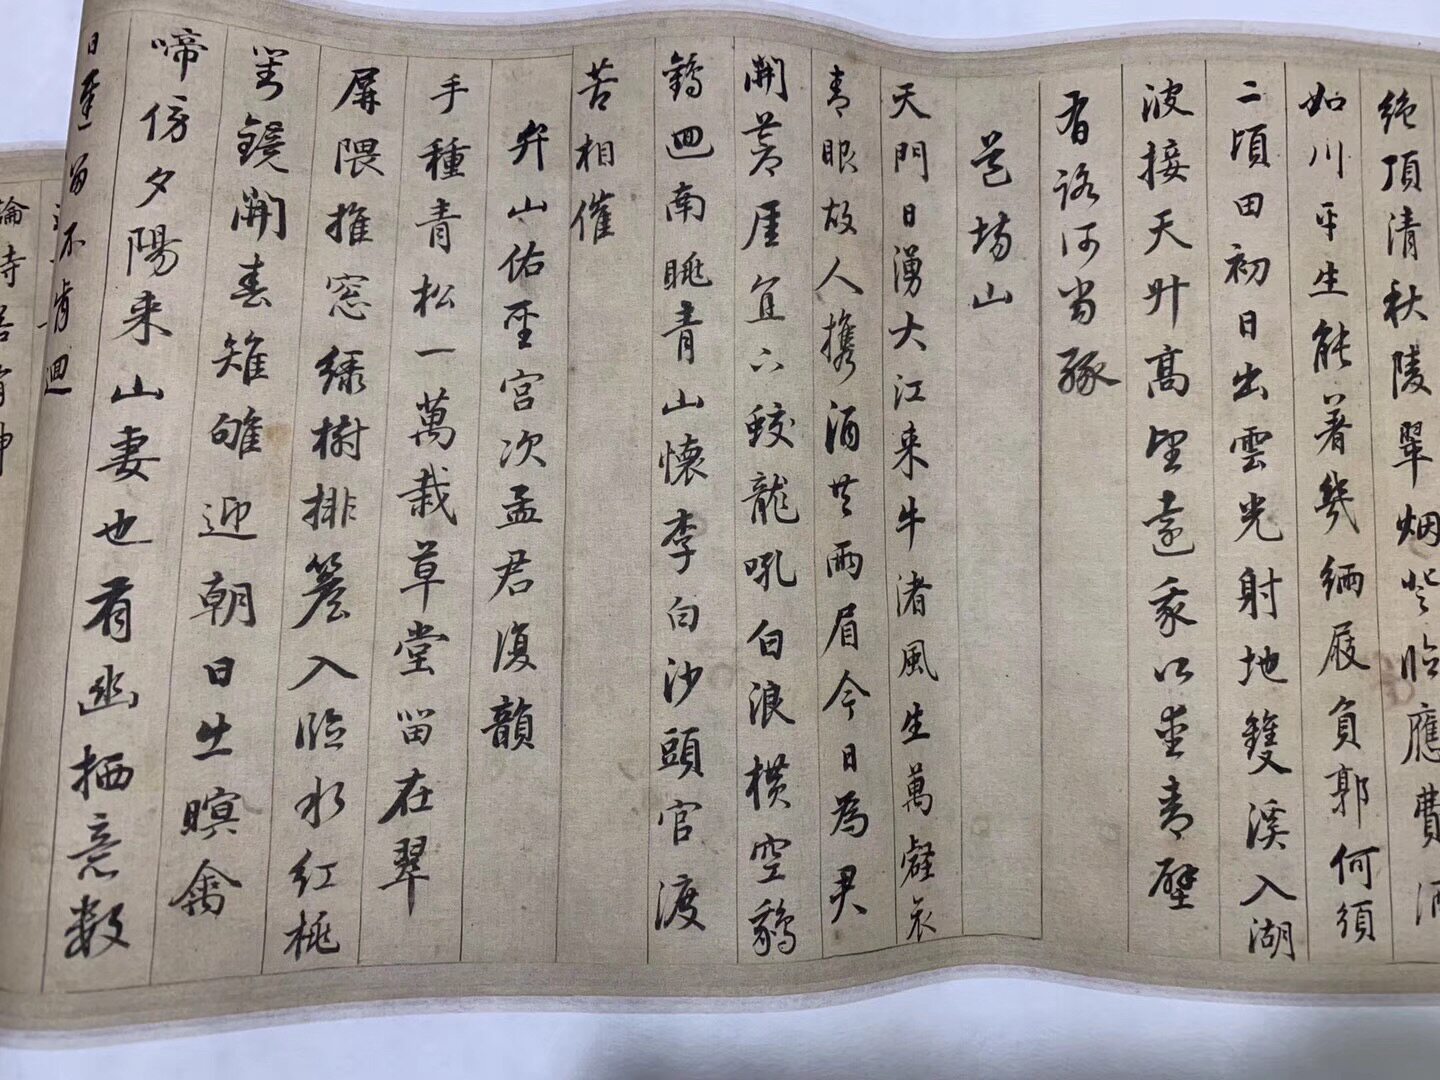 絶頂清秋陵翠烟登临應費酒
如川平生能著幾緉屐負郭何須
二頃田初日出雲光射地雙溪入湖
波接天升髙望遠我以壺青壁
有路何当緣
蒼場山
天門日湧大江来牛渚風生萬壑哀
青眼故人攜酒共兩眉今日為君
開蒼厓直下蛟龍吼白浪横空鵝
鸛迴南眺青山懷李白沙頭官渡
苦相催
弁山佑聖宫次孟君復韻
手種青松一萬栽草堂留在翠
屏隈推窓绿樹排簷入临水红桃
對鏡開春雉雊迎朝日出暝禽
啼傍夕陽来山妻也有幽栖意數
日遲留不肯迴
論詩